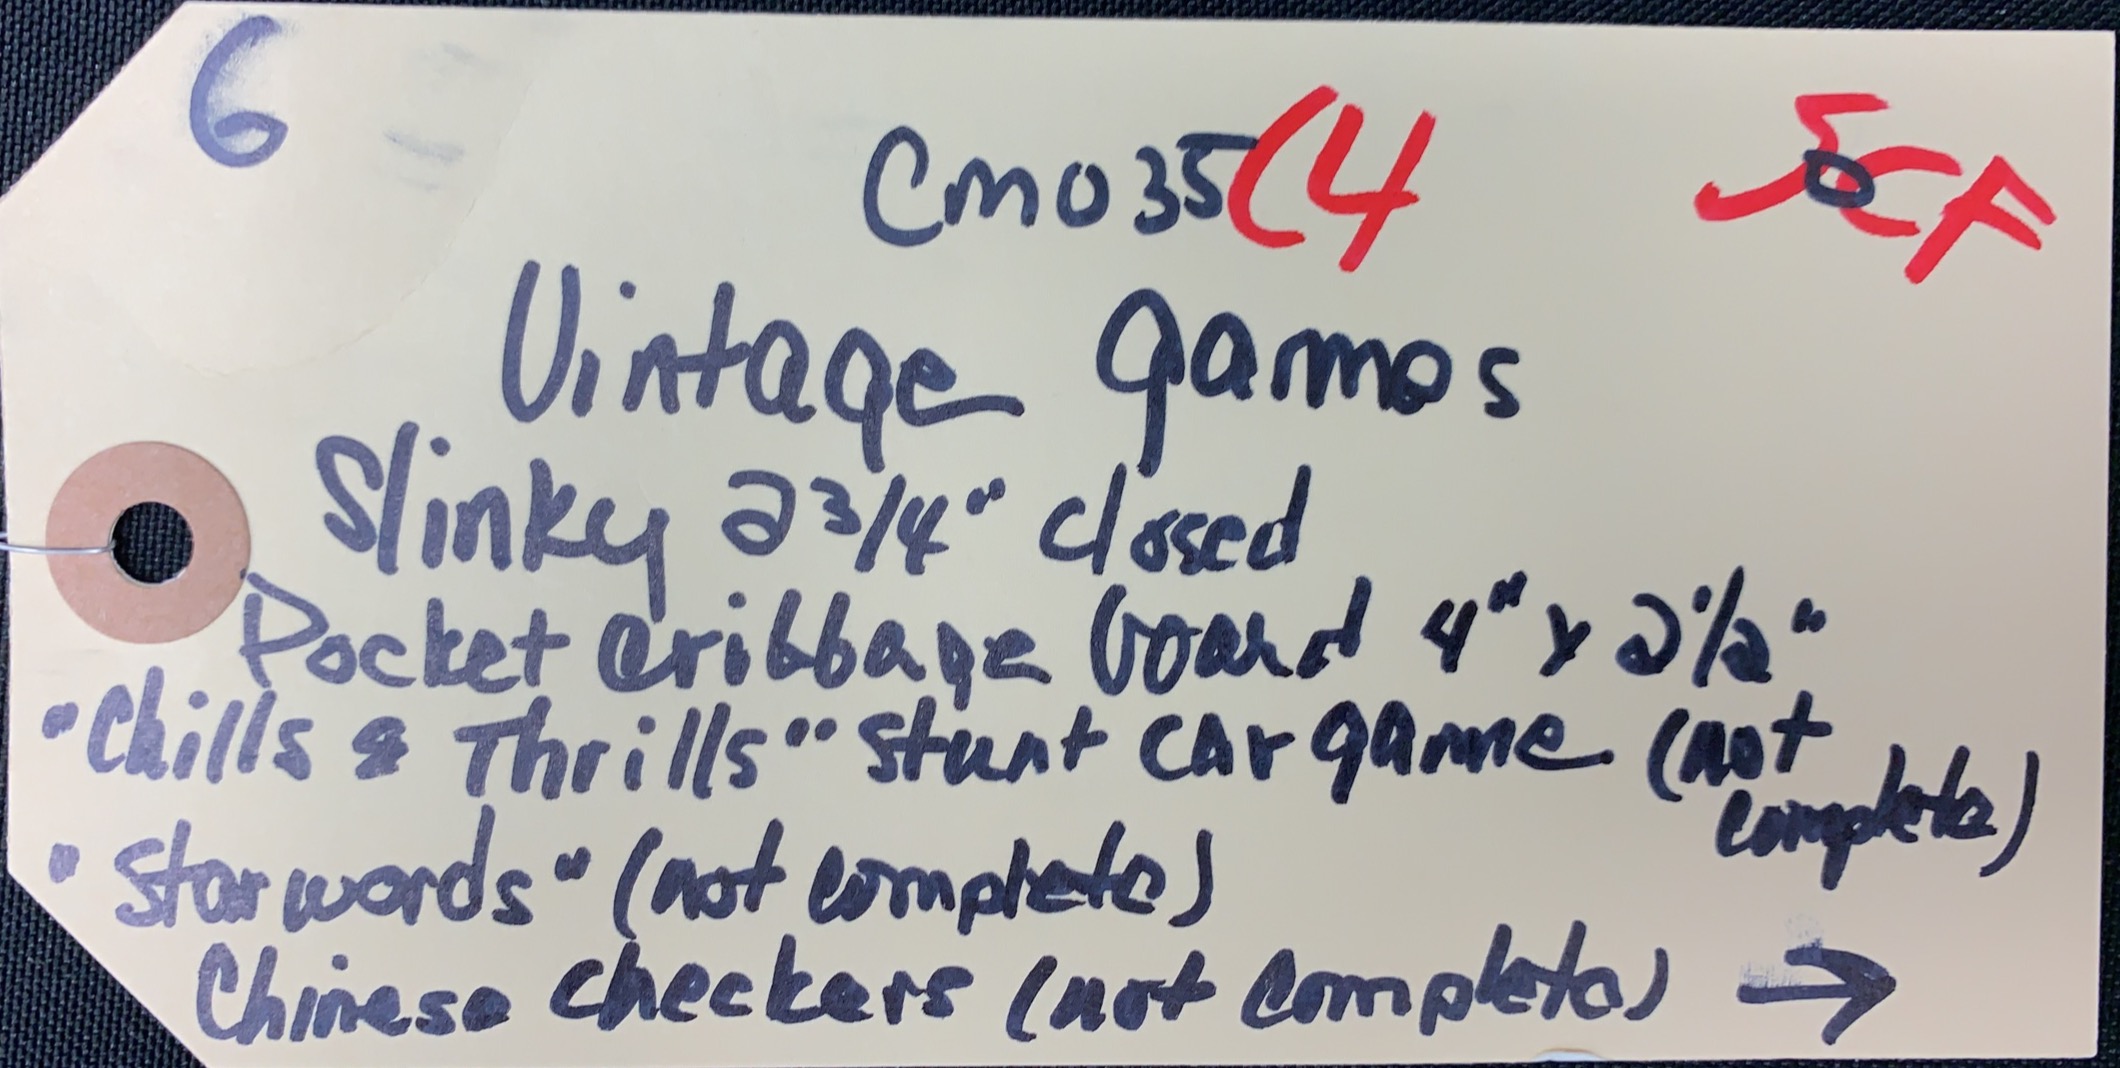 6
Cmo35 (4
JCF
Vintage games
Slinky 2 3/4" closed
Pocket cribbage board 4" x 2 1/2"
"Chills & Thrills" stunt car game (not complete)
"Starwords" (not complete)
Chinese checkers (not complete) →